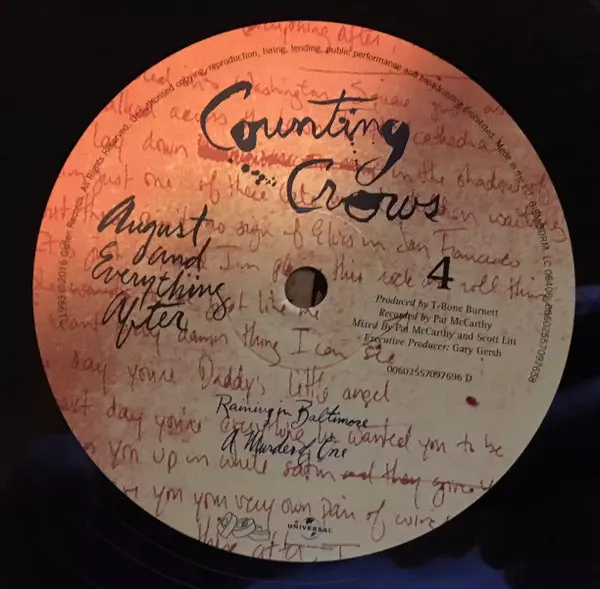 everything after,
Unauthorised copying, reproduction, hiring, lending, public performance and broadcasting prohibited. Made in the
1993 © 2016 Geffen Records. All Rights Reserved.
BIEM/SDRM. LC 06406. 00602557097658
Counting
Crows
August
and
Everything
After
4
Produced by T-Bone Burnett
Recorded by Pat McCarthy
Mixed By Pat McCarthy and Scott Litt
Executive Producer: Gary Gersh
00602557097696 D
Washington Square
across the cathedral
lay down in the shadow of
just one of these waiting
no sign of Elvis in San Francisco
this rock and roll thing
like me
damn thing I can see
day you're Daddy's little angel
next day you're everything wanted you to be
you up in white satin and they give
you your very own pair of
Raining in Baltimore
A Murder of One
UNIVERSAL